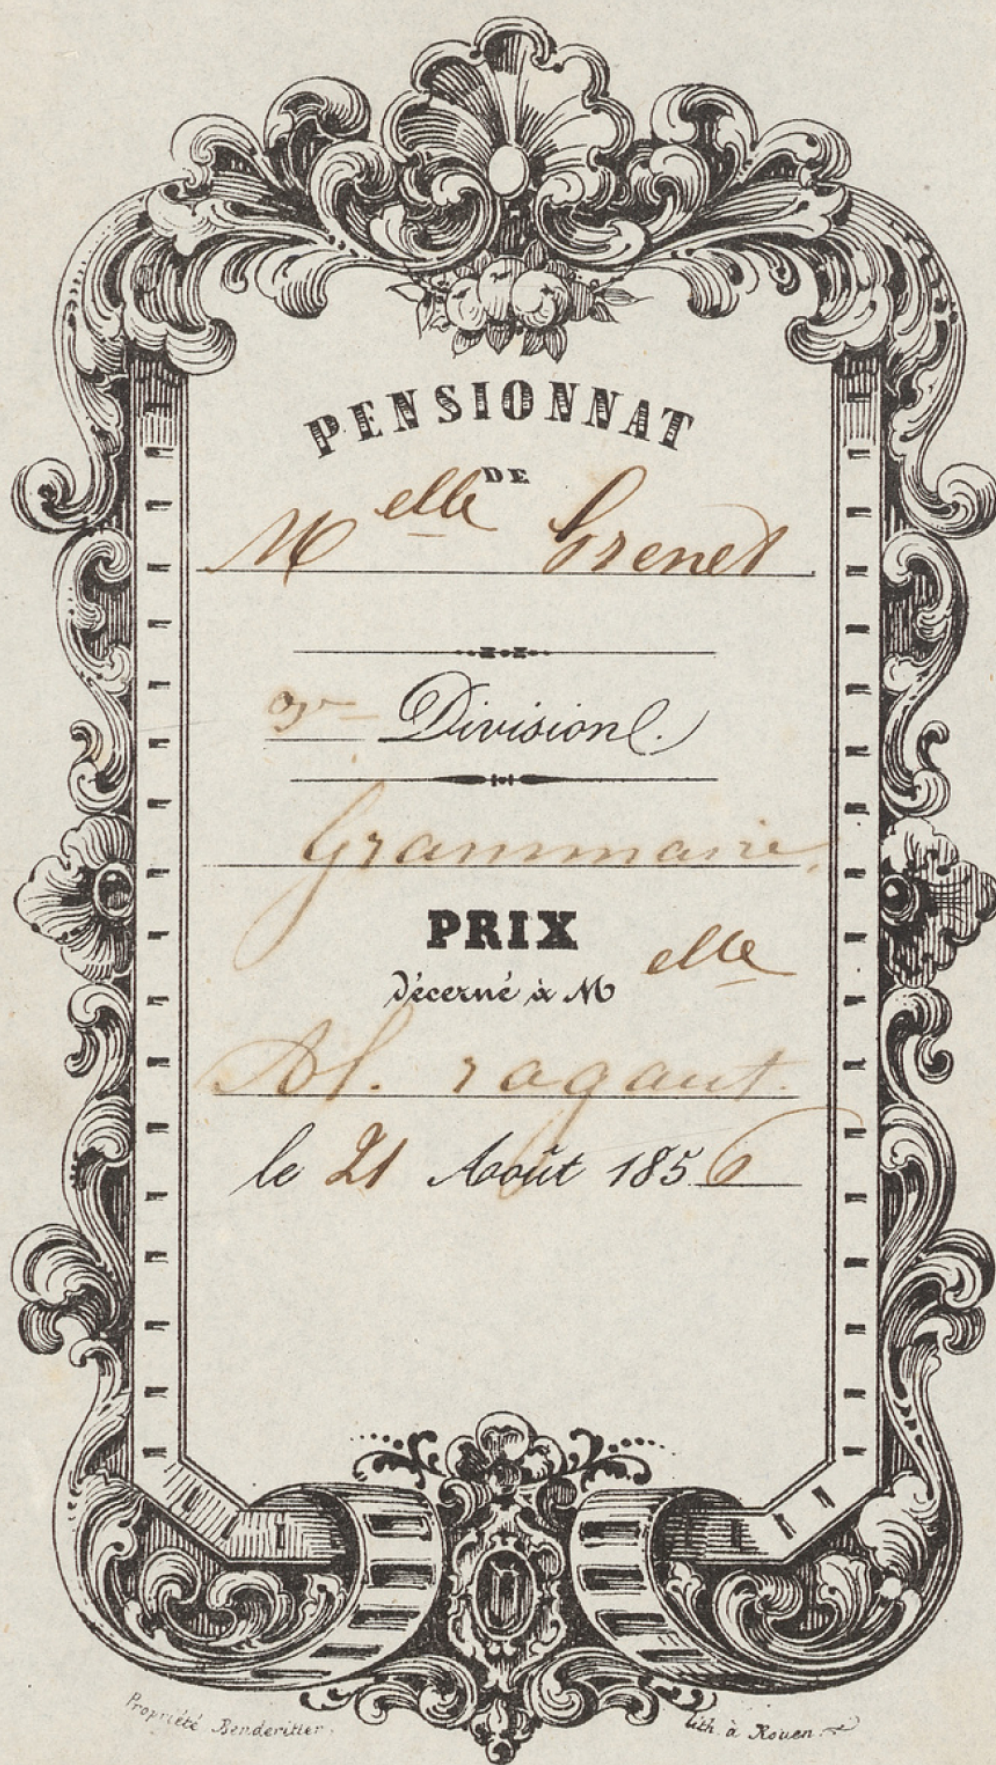 PENSIONNAT
DE
Melle Grenet
Division.
Grammaire.
PRIX
décerné à Melle
Al. ragaut.
le 21 Août 1856
Propriété Benderitter.
lith. à Rouen.